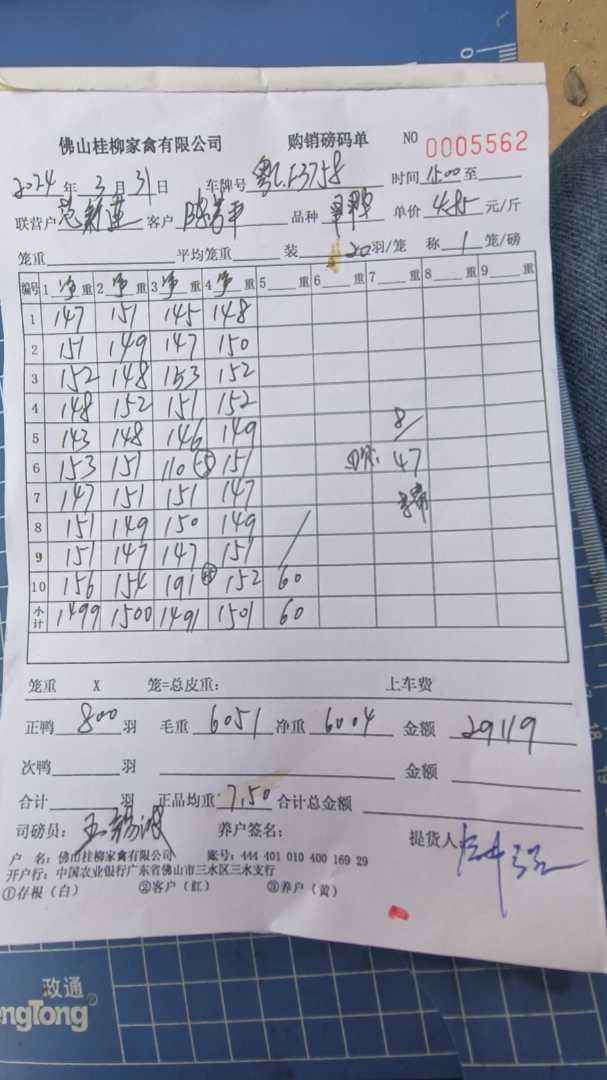 佛山桂柳家禽有限公司 购销磅码单 NO 0005562
2024年3月31日 车牌号 时间 1500至
联营户 客户 品种 单价 4.85 元/斤
笼重 平均笼重 装 20 羽/笼 称 1 笼/磅
编号 1 净 重 2 净 重 3 净 重 4 净 重 5 重 6 重 7 重 8 重 9 重
1 147 151 145 148
2 151 149 147 150
3 152 148 153 152
4 148 152 151 152
5 143 148 146 149 8/
6 153 151 110 151 47
7 147 151 151 147
8 151 149 150 149
9 151 147 147 151
10 156 154 191 152 60
小计 1499 1500 1491 1501 60
笼重 X 笼=总皮重： 上车费
正鸭 800 羽 毛重 6051 净重 6004 金额 29119
次鸭 羽 金额
合计 羽 正品均重 7.50 合计总金额
司磅员： 养户签名： 提货人
户 名：佛山桂柳家禽有限公司 账号：444 401 010 400 169 29
开户行：中国农业银行广东省佛山市三水区三水支行
①存根（白） ②客户（红） ③养户（黄）
政通
engTong